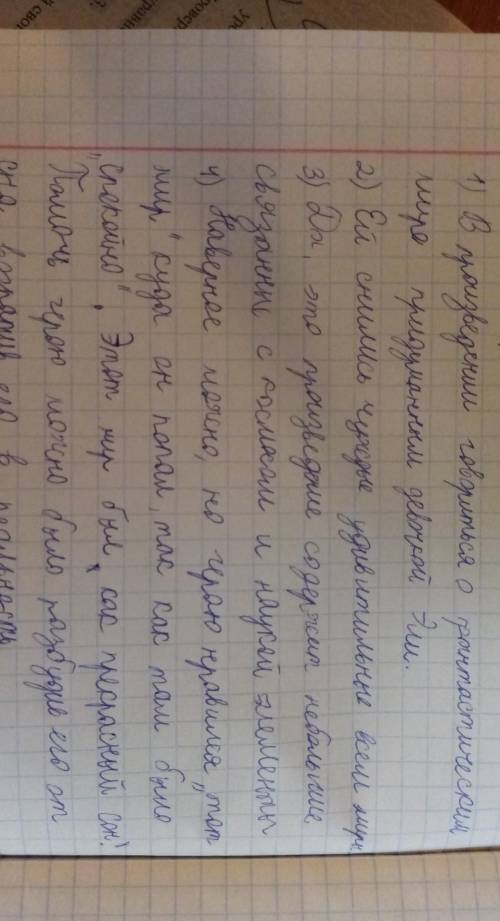 1) В произведении говориться о фантастическим
мире придуманным девочкой Эли.
2) Ей снились чуждые удивительные всем миры
3) Да, это произведие содержит небольшие
связанные с космосом и наукой элементы
4) Наверное можно, но герою нравился "тот
мир" куда он попал, так как там было
"спокойно". Этот мир был, как прекрасный сон!
Помочь герою можно было разбудив его от
сна, возвратив его в реальность